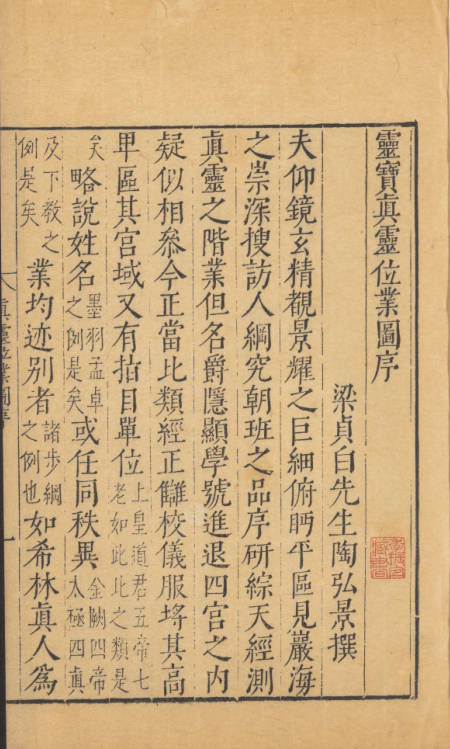 靈寶眞靈位業圖序
梁貞白先生陶弘景撰
夫仰鏡玄精覩景耀之巨細俯眄平區見巖海
之崇深搜訪人綱究朝班之品序研綜天經測
眞靈之階業但名爵隱顯學號進退四宮之內
疑似相參今正當比類經正讎校儀服埒其高
卑區其宮域又有指目單位上皇道君五帝七老如此比之類是
矣略說姓名墨羽孟卓之例是矣或任同秩異金闕四帝太極四眞
及下教之例是矣業均迹別者諸步綱之例也如希林眞人爲
眞靈位業圖序
一